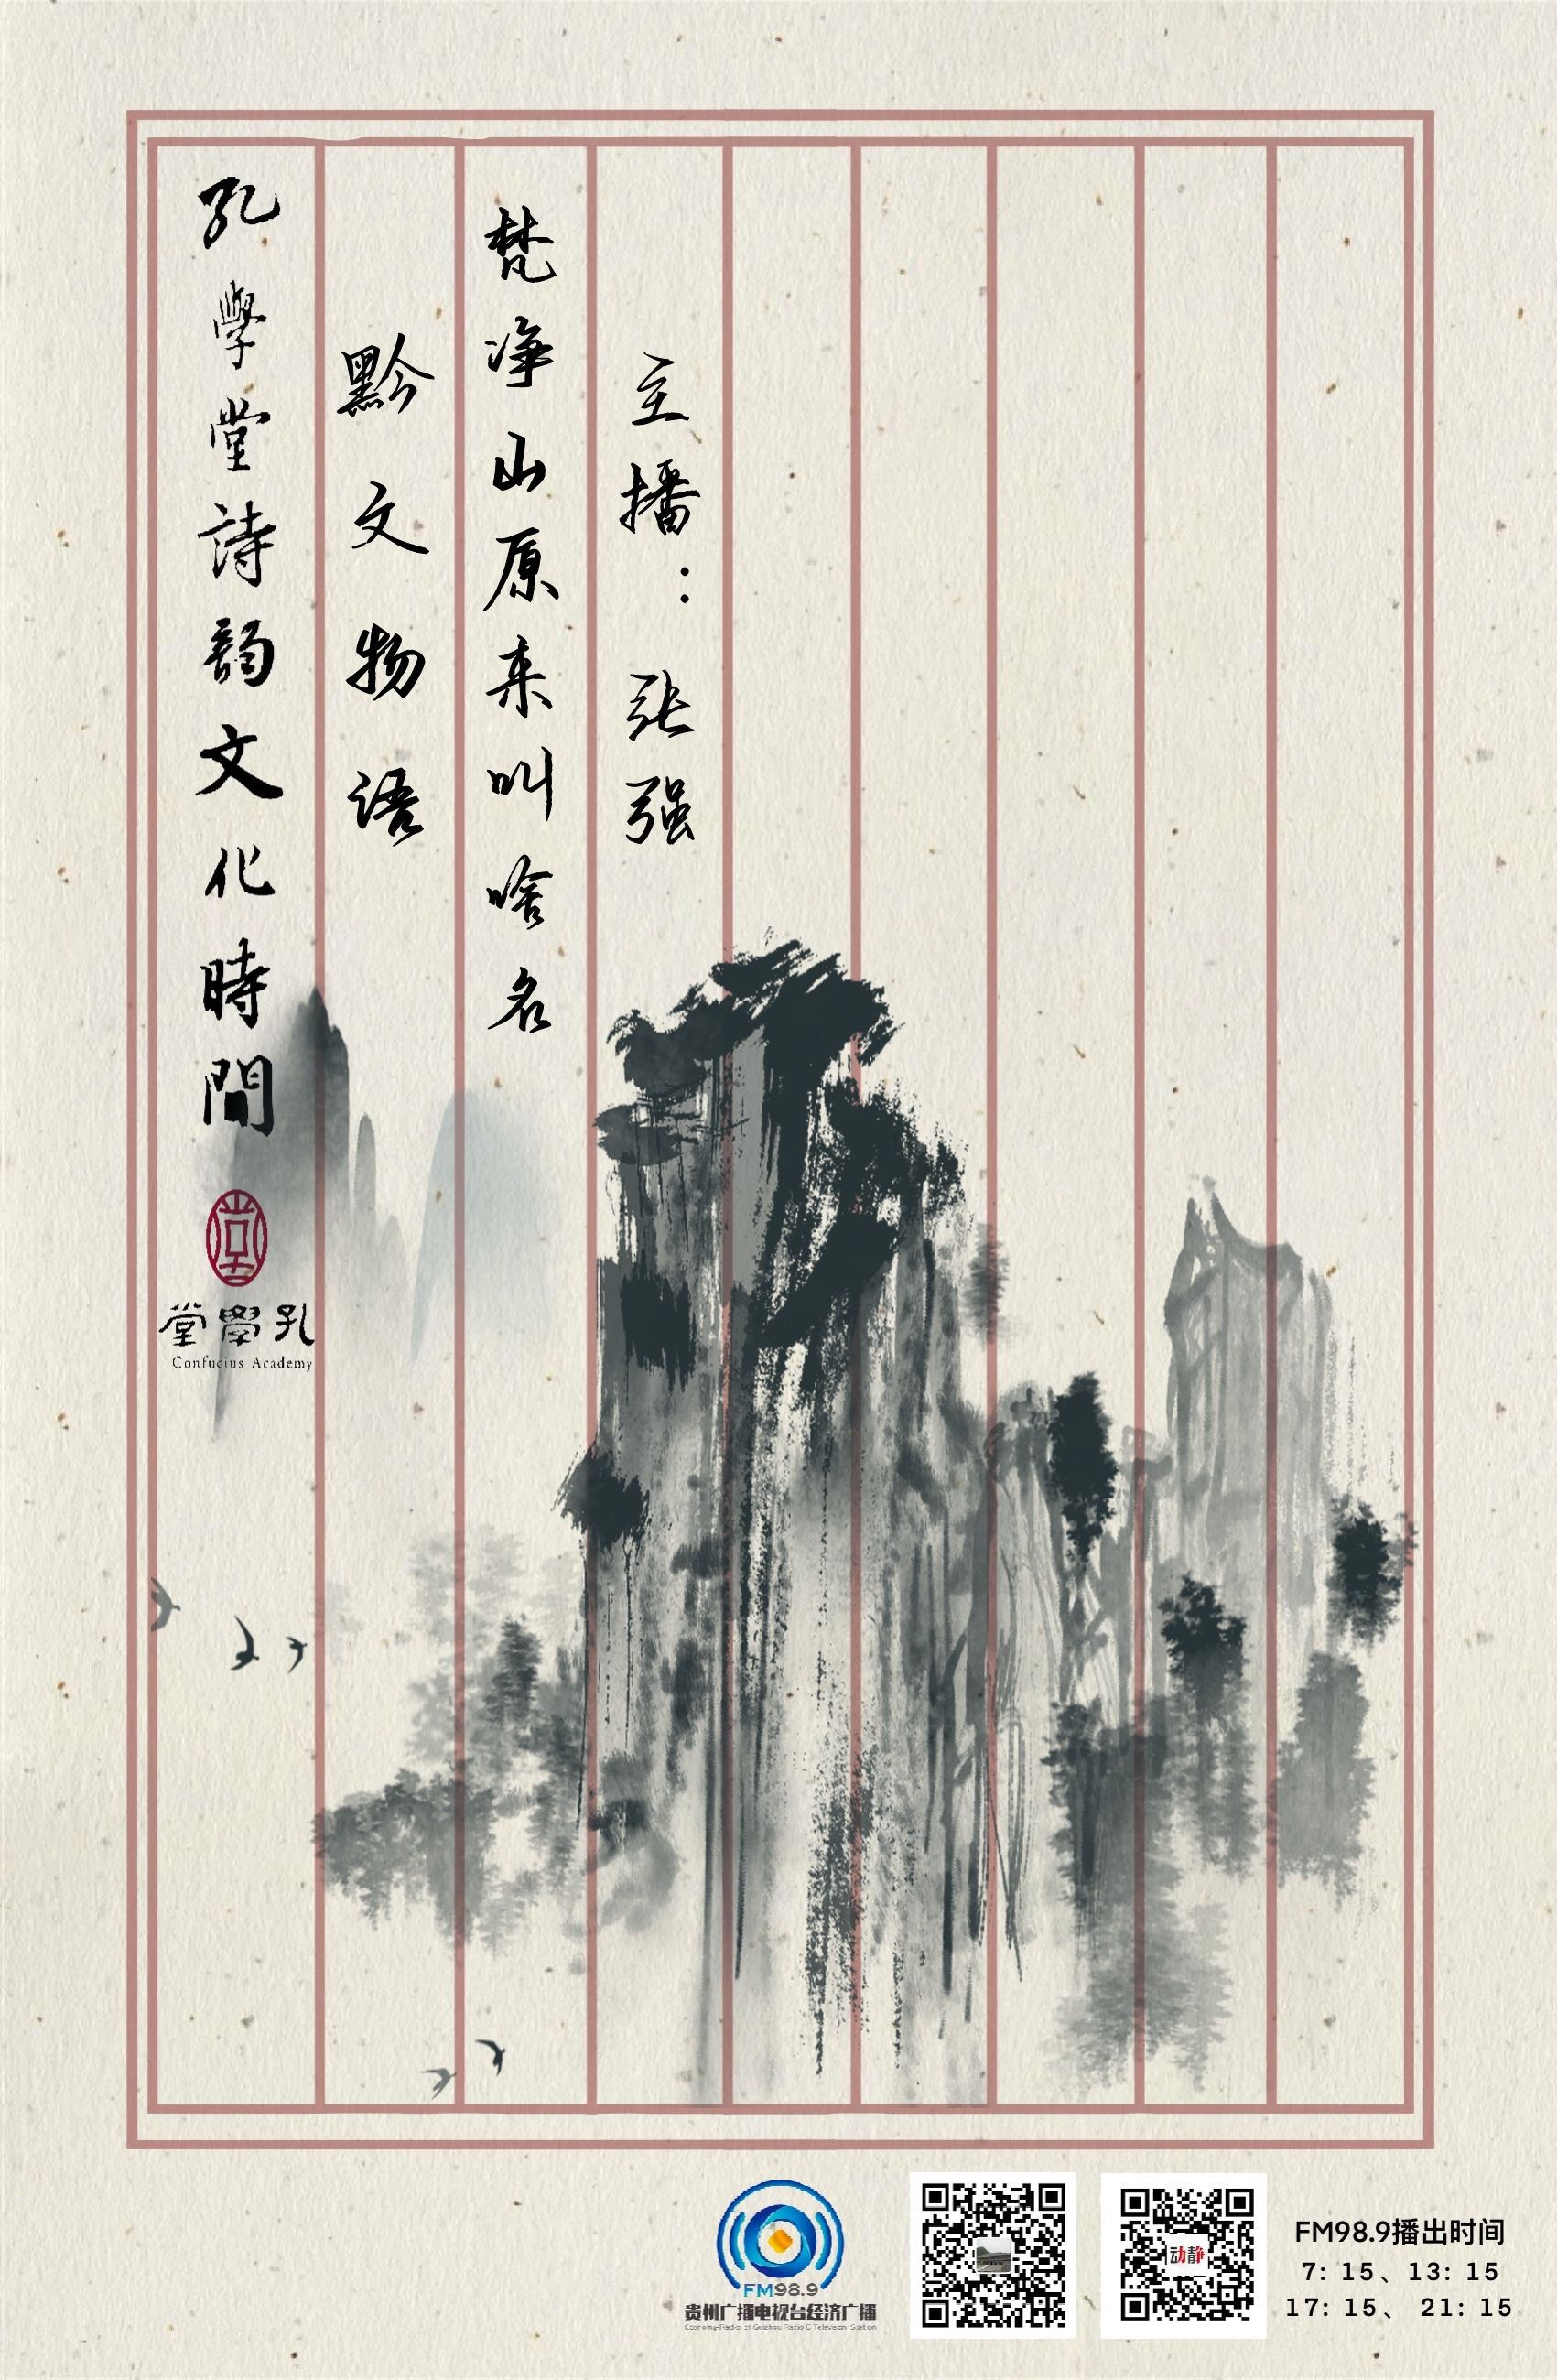 孔學堂詩韵文化時間
黔文物语
梵净山原来叫啥名
主播：张强
堂學孔
Confucius Academy
FM98.9
贵州广播电视台经济广播
Economy-Radio of Guizhou Radio & Television Station
动静
FM98.9播出时间
7: 15、13: 15
17: 15、 21: 15